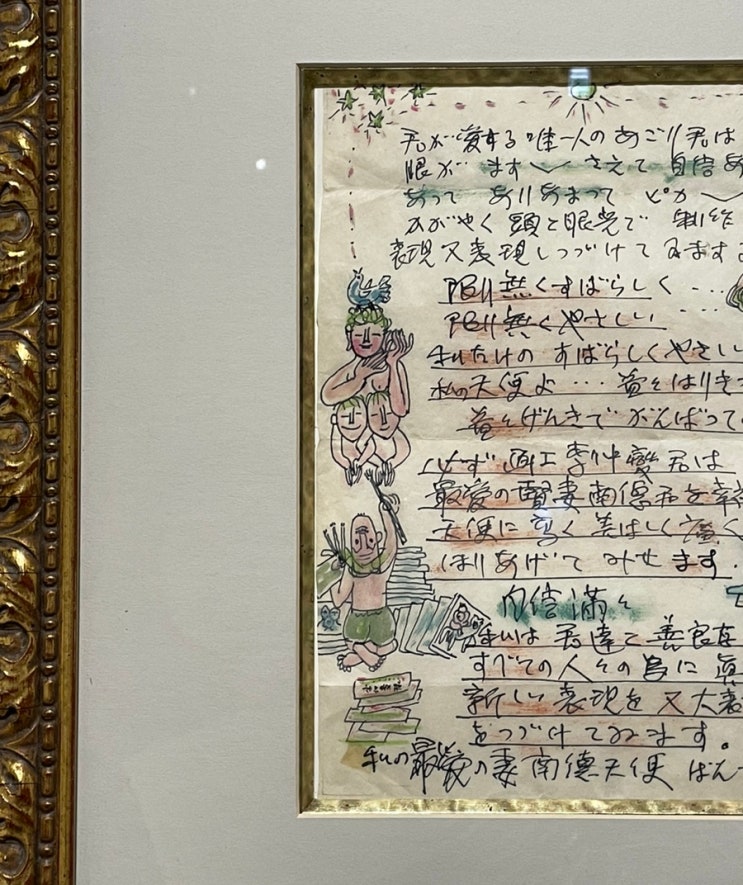 君が愛する唯一人のあごリ君は
眼が ます〱 さえて 自信あ
あって ありあまって ピカ〱
かがやく 頭と眼光で 制作
表現又表現しつづけてゐます
限り無くすばらしく ...
限り無くやさしい
私だけの すばらしくやさしい
私の天使よ ... 益々はりき
益々げんきで がんばって
必ず 画工李仲燮君は
最愛の賢妻南徳君を幸
天使に 高く 美しく 広く
ほりあげて みせます.
自信満々
私は 君達と 善良な
すべての人々の為に 真
新しい 表現を 又 大表
をつづけてゐます。
私の最愛の妻南德天使 ばん